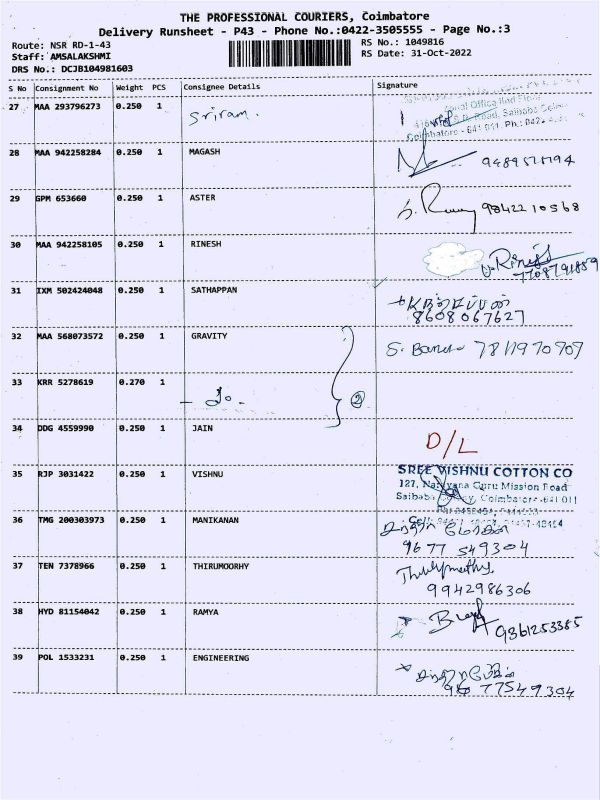 THE PROFESSIONAL COURIERS, Coimbatore
Delivery Runsheet - P43 - Phone No.:0422-3505555 - Page No.:3
Route: NSR RD-1-43
RS No.: 1049816
Staff: AMSALAKSHMI
RS Date: 31-Oct-2022
DRS No.: DCJB104981603
S No Consignment No Weight PCS Consignee Details Signature
27 MAA 293796273 0.250 1 Sriram.
Saibaba
Coimbatore - 641 011. Ph.: 0422
28 MAA 942258284 0.250 1 MAGASH
29 GPM 653660 0.250 1 ASTER 9842210568
30 MAA 942258105 0.250 1 RINESH
7708791859
31 IXM 502424048 0.250 1 SATHAPPAN
8608067627
32 MAA 568073572 0.250 1 GRAVITY 7811970707
33 KRR 5278619 0.270 1
2
34 DDG 4559990 0.250 1 JAIN D/L
35 RJP 3031422 0.250 1 VISHNU SREE VISHNU COTTON CO
127, Narayana Guru Mission Road
Saibaba Colony, Coimbatore-641 011
36 TMG 200303973 0.250 1 MANIKANAN
9677549304
37 TEN 7378966 0.250 1 THIRUMOORHY
9942986306
38 HYD 81154042 0.250 1 RAMYA 9361253385
39 POL 1533231 0.250 1 ENGINEERING
9677549304